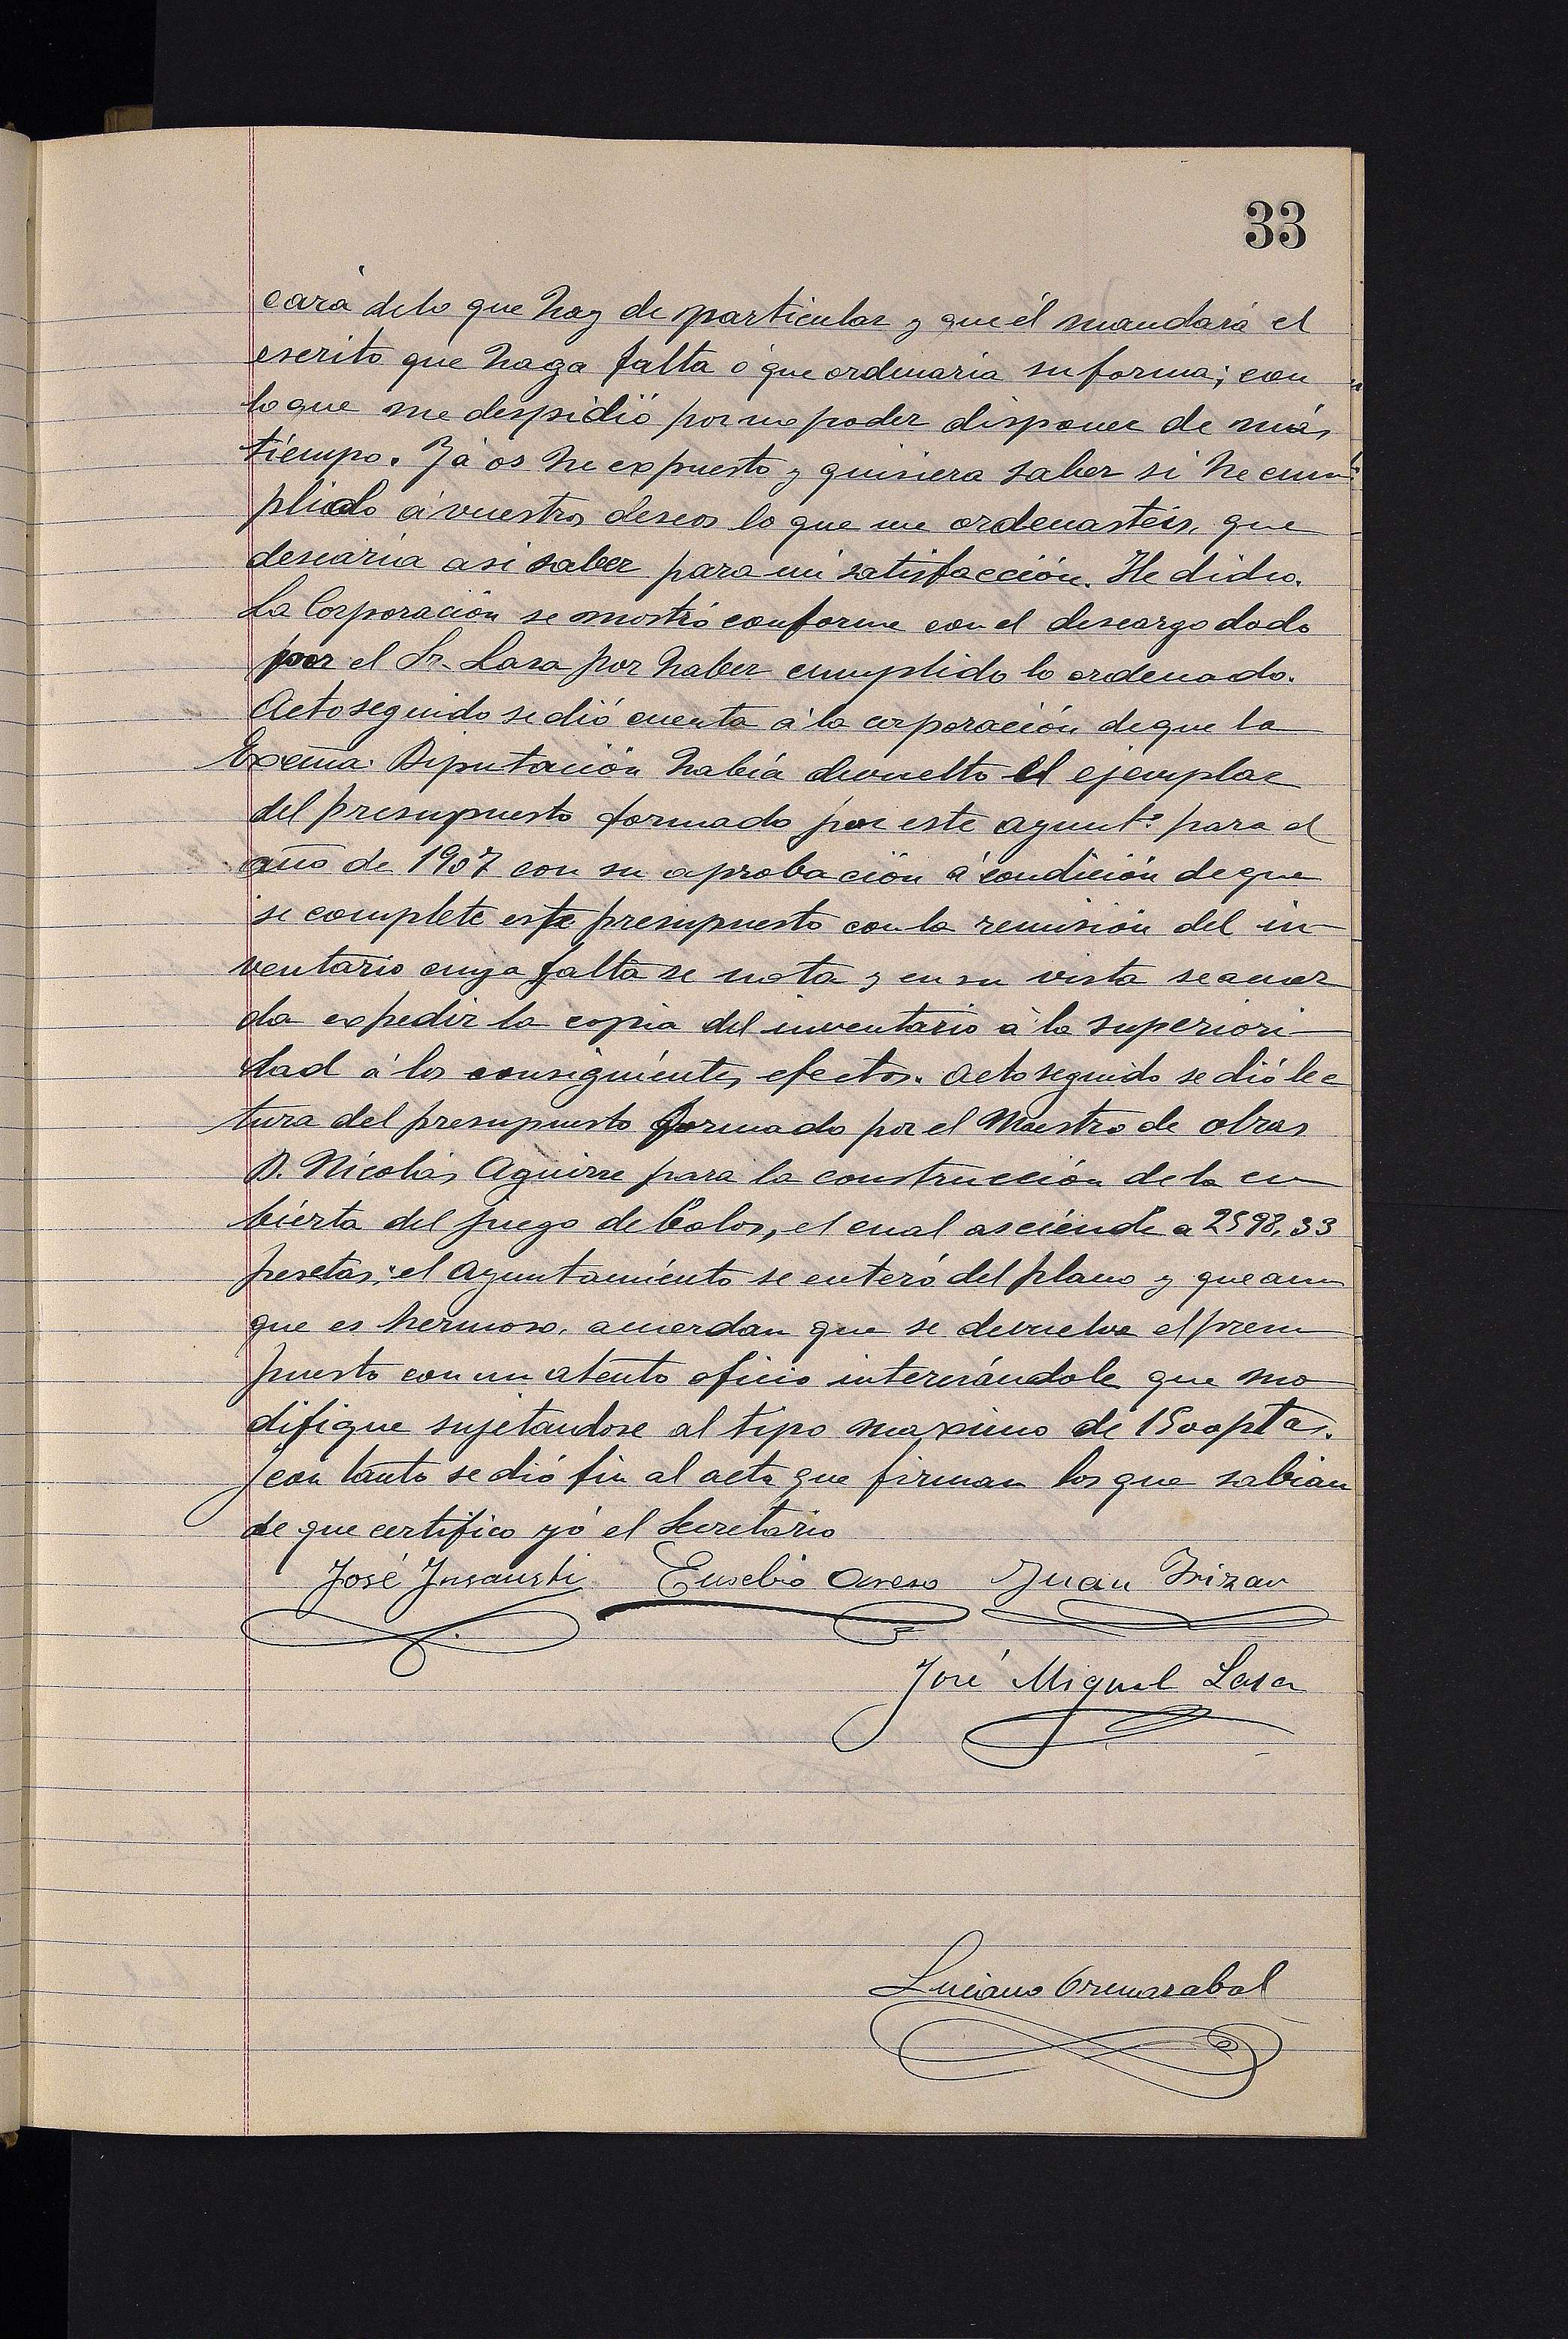 33
cará de lo que hay de particular y que él mandará el
escrito que haga falta ó que ordenaria su forma; con
lo que me despidió por no poder disponer de más
tiempo. Já os he expuesto y quisiera saber si he cum
plido á vuestros deseos lo que me ordenasteis, que
desearia asi saber para mi satisfacción. He dicho.
La Corporación se mostró conforme con el descargo dado
por el Sr. Lasa por haber cumplido lo ordenado.
Acto seguido se dió cuenta á la corporación de que la
Excma. Diputación había devuelto el ejemplar
del presupuesto formado por este ayunt.º para el
año de 1907 con su aprobación á condición de que
se complete este presupuesto con la remisión del in-
ventario cuya falta se nota y en su vista se acuer
da expedir la copia del inventario á la superiori-
dad á los consiguientes efectos. Acto seguido se dió lec
tura del presupuesto formado por el Maestro de obras
D. Nicolás Aguirre para la construcción de la cu
bierta del juego de bolos, el cual asciende a 2598,33
pesetas; el Ayuntamiento se enteró del plano y que aun
que es hermoso, acuerdan que se devuelva el presu
puesto con un atento oficio interesándole que mo
difique sujetandose al tipo maximo de 1500 ptas.
Y con tanto se dió fin al acta que firman los que sabian
de que certifico yó el Secretario
José Insausti Eusebio Aseso Juan Irizar
José Miguel Lasa
Luciano Ormazabal